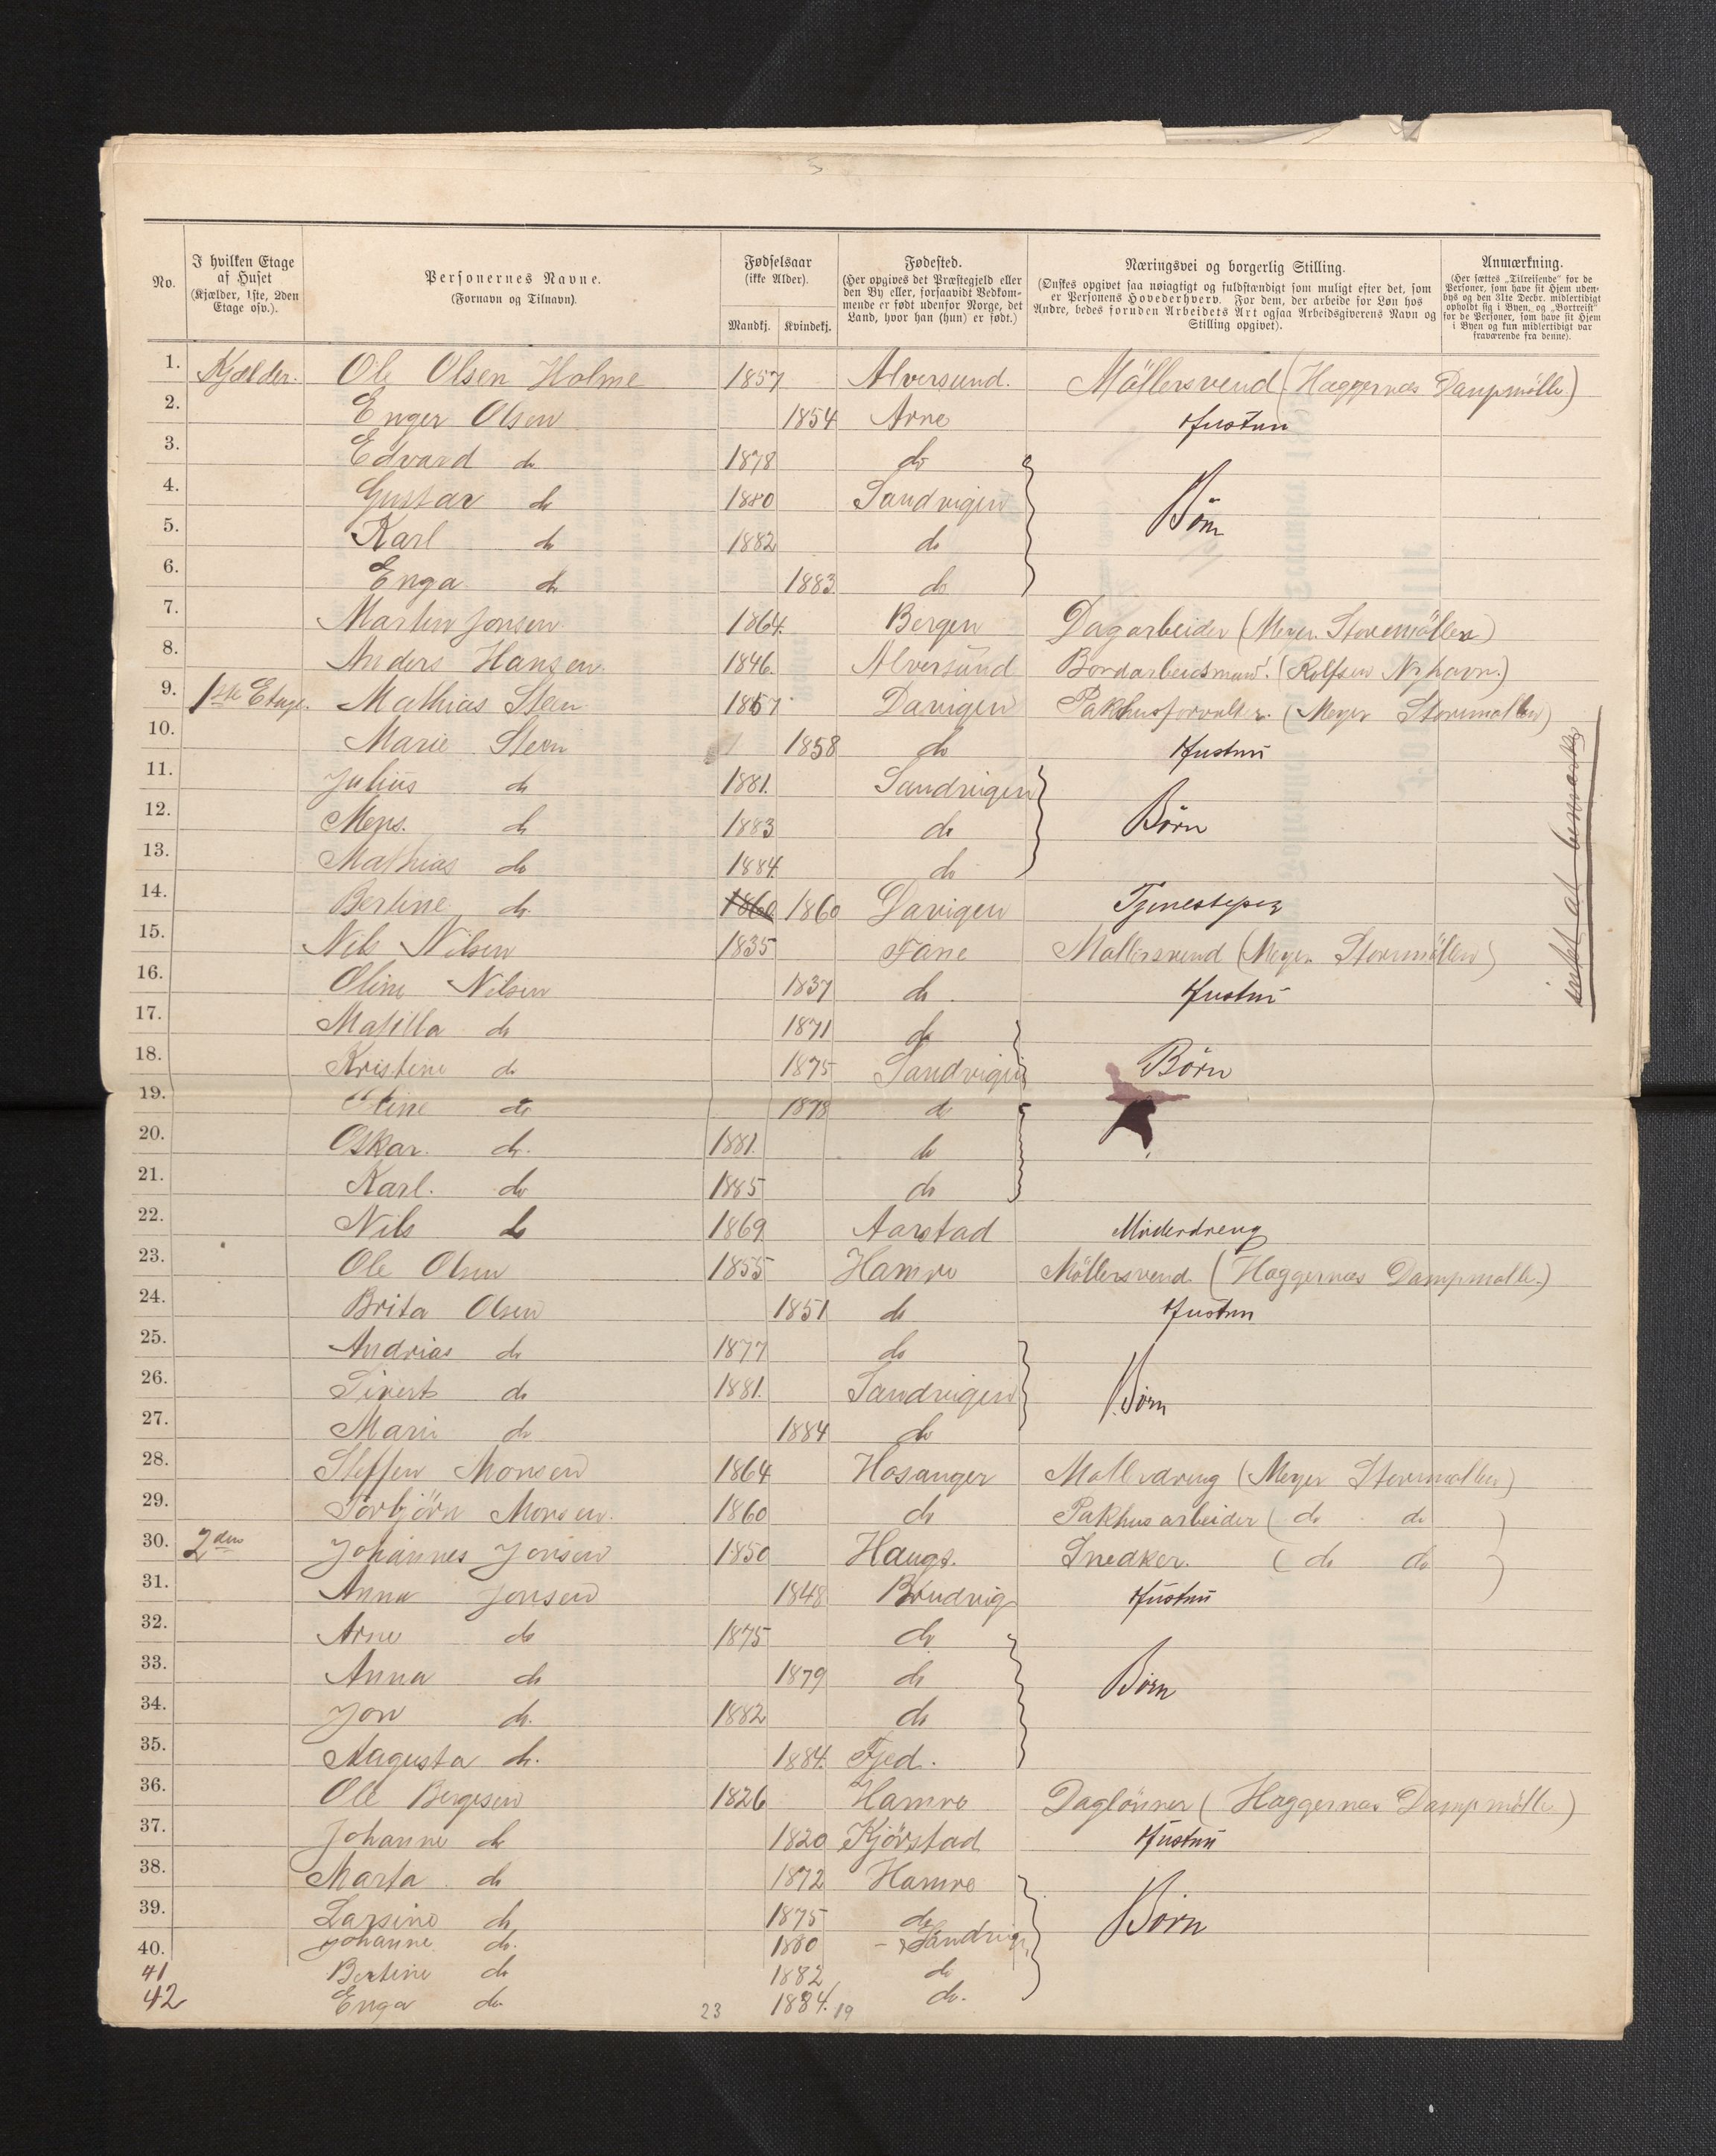 No.
I hvilken Etage af Huset (Kjælder, 1ste, 2den Etage osv.).
Personernes Navne. (Fornavn og Tilnavn).
Fødselsaar (ikke Alder). Mandkj. Kvindekj.
Fødested. (Her opgives det Præstegjeld eller den By eller, forsaavidt Vedkommende er født udenfor Norge, det Land, hvor han (hun) er født.)
Næringsvei og borgerlig Stilling. (Ønskes opgivet saa nøiagtigt og fuldstændigt som muligt efter det, som er Personens Hovederhverv. For dem, der arbeide for Løn hos Andre, bedes foruden Arbeidets Art ogsaa Arbeidsgiverens Navn og Stilling opgivet).
Anmærkning. (Her sættes „Tilreisende" for de Personer, som have sit Hjem udenbys og den 31te Decbr. midlertidigt opholdt sig i Byen, og „Bortreist" for de Personer, som have sit Hjem i Byen og kun midlertidigt var fraværende fra denne).
1. Kjælder. Ole Olsen Holme 1857 Alversund. Möllersvend (Hæggernæs Dampmölle)
2. Enger Olsen 1854 Arne Hustru
3. Edvard do 1878 do
4. Gustav do 1880 Sandvigen Börn
5. Karl do 1882 do
6. Enga do 1883 do
7. Martin Jonsen 1864. Bergen Dagarbeider (Meyer. Storemöllen)
8. Anders Hansen. 1846. Alversund Bordarbeidsmand. (Rolfsen Nyhavn.)
9. 1ste Etage. Mathias Steen 1857 Davigen Pakhusforvalter. (Meyer Storemøllen)
10. Marie Steen 1858 do Hustru
11. Julius do 1881. Sandvigen
12. Mons. do 1883 do Börn
13. Mathias do 1884. do
14. Bertine do. 1860 1860 Davigen
15. Nils Nilsen 1835 Fane Møllersvend (Meyer. Storemöllen)
16. Oline Nilsen 1837 do Hustru
17. Matilla do 1871 do
18. Kristine do 1875 Sandvigen Börn
19. Eline do 1878 do
20. Oskar. do. 1881. do
21. Karl. do 1885 do
22. Nils do 1869 Aarstad
23. Ole Olsen 1855 Hamre Möllersvend. (Hæggernæs Dampmølle.)
24. Brita Olsen 1851 do Hustru
25. Andrias do 1877 do
26. Sivert do 1881. Sandvigen Börn
27. Mari do 1884 do
28. Steffen Monsen 1864 Hosanger Mølledreng (Meyer Storemøllen)
29. Torbjörn Monsen. 1860 do Pakhusarbeider (do do)
30. 2den Johannes Jonsen 1850 Haugs. Snedker. (do do)
31. Anna Jonsen 1848 Brudvig Hustru
32. Arne do 1875 do
33. Anna do 1879 do Börn
34. Jon do. 1882 do
35. Augusta do. 1884. Fjed.
36. Ole Bergesen 1826 Hamre Daglönner (Hæggernæs Dampmölle)
37. Johanne do 1820 Kjörstad Hustru
38. Marta do 1872 Hamre
39. Larsine do 1875 do Börn
40. Johanne do. 1880 - Sandvig.
41 Bertine do 1882 do
42 Enga do. 1884. do.
23 19